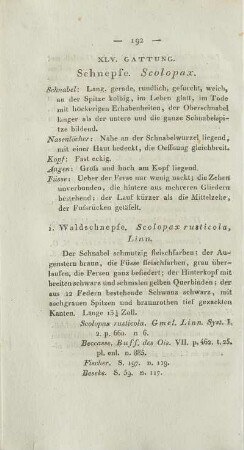 — 192 —
XLV. GATTUNG.
Schnepfe. Scolopax.
Schnabel: Lang, gerade, rundlich, gefurcht, weich,
an der Spitze kolbig, im Leben glatt, im Tode
mit höckerigen Erhabenheiten, der Oberschnabel
länger als der untere und die ganze Schnabelspi-
tze bildend.
Nasenlöcher: Nähe an der Schnabelwurzel liegend,
mit einer Haut bedeckt, die Oeffnung gleichbreit.
Kopf: Fast eckig.
Augen: Groſs und hoch am Kopf liegend.
Füsse: Ueber der Ferse nur wenig nackt; die Zehen
unverbunden, die hintere aus mehreren Gliedern
bestehend; der Lauf kürzer als die Mittelzehe,
der Fuſsrücken getäfelt.
1. Waldschnepfe. Scolopax rusticola,
Linn.
Der Schnabel schmutzig fleischfarben; der Au-
genstern braun, die Füſse fleischfarben, grau über-
laufen, die Fersen ganz befiedert; der Hinterkopf mit
breiten schwarz und schmalen gelben Querbinden; der
aus 12 Federn bestehende Schwanz schwarz, mit
aschgrauen Spitzen und braunrothen tief gezackten
Kanten. Länge 15½ Zoll.
Scolopax rusticola. Gmel. Linn. Syst. I.
2. p. 660. n 6.
Beccasse, Buff. des Ois. VII. p. 462. t. 25.
pl. enl. n. 885.
Fischer. S. 197. n. 179.
Beseke. S. 59. n. 117.